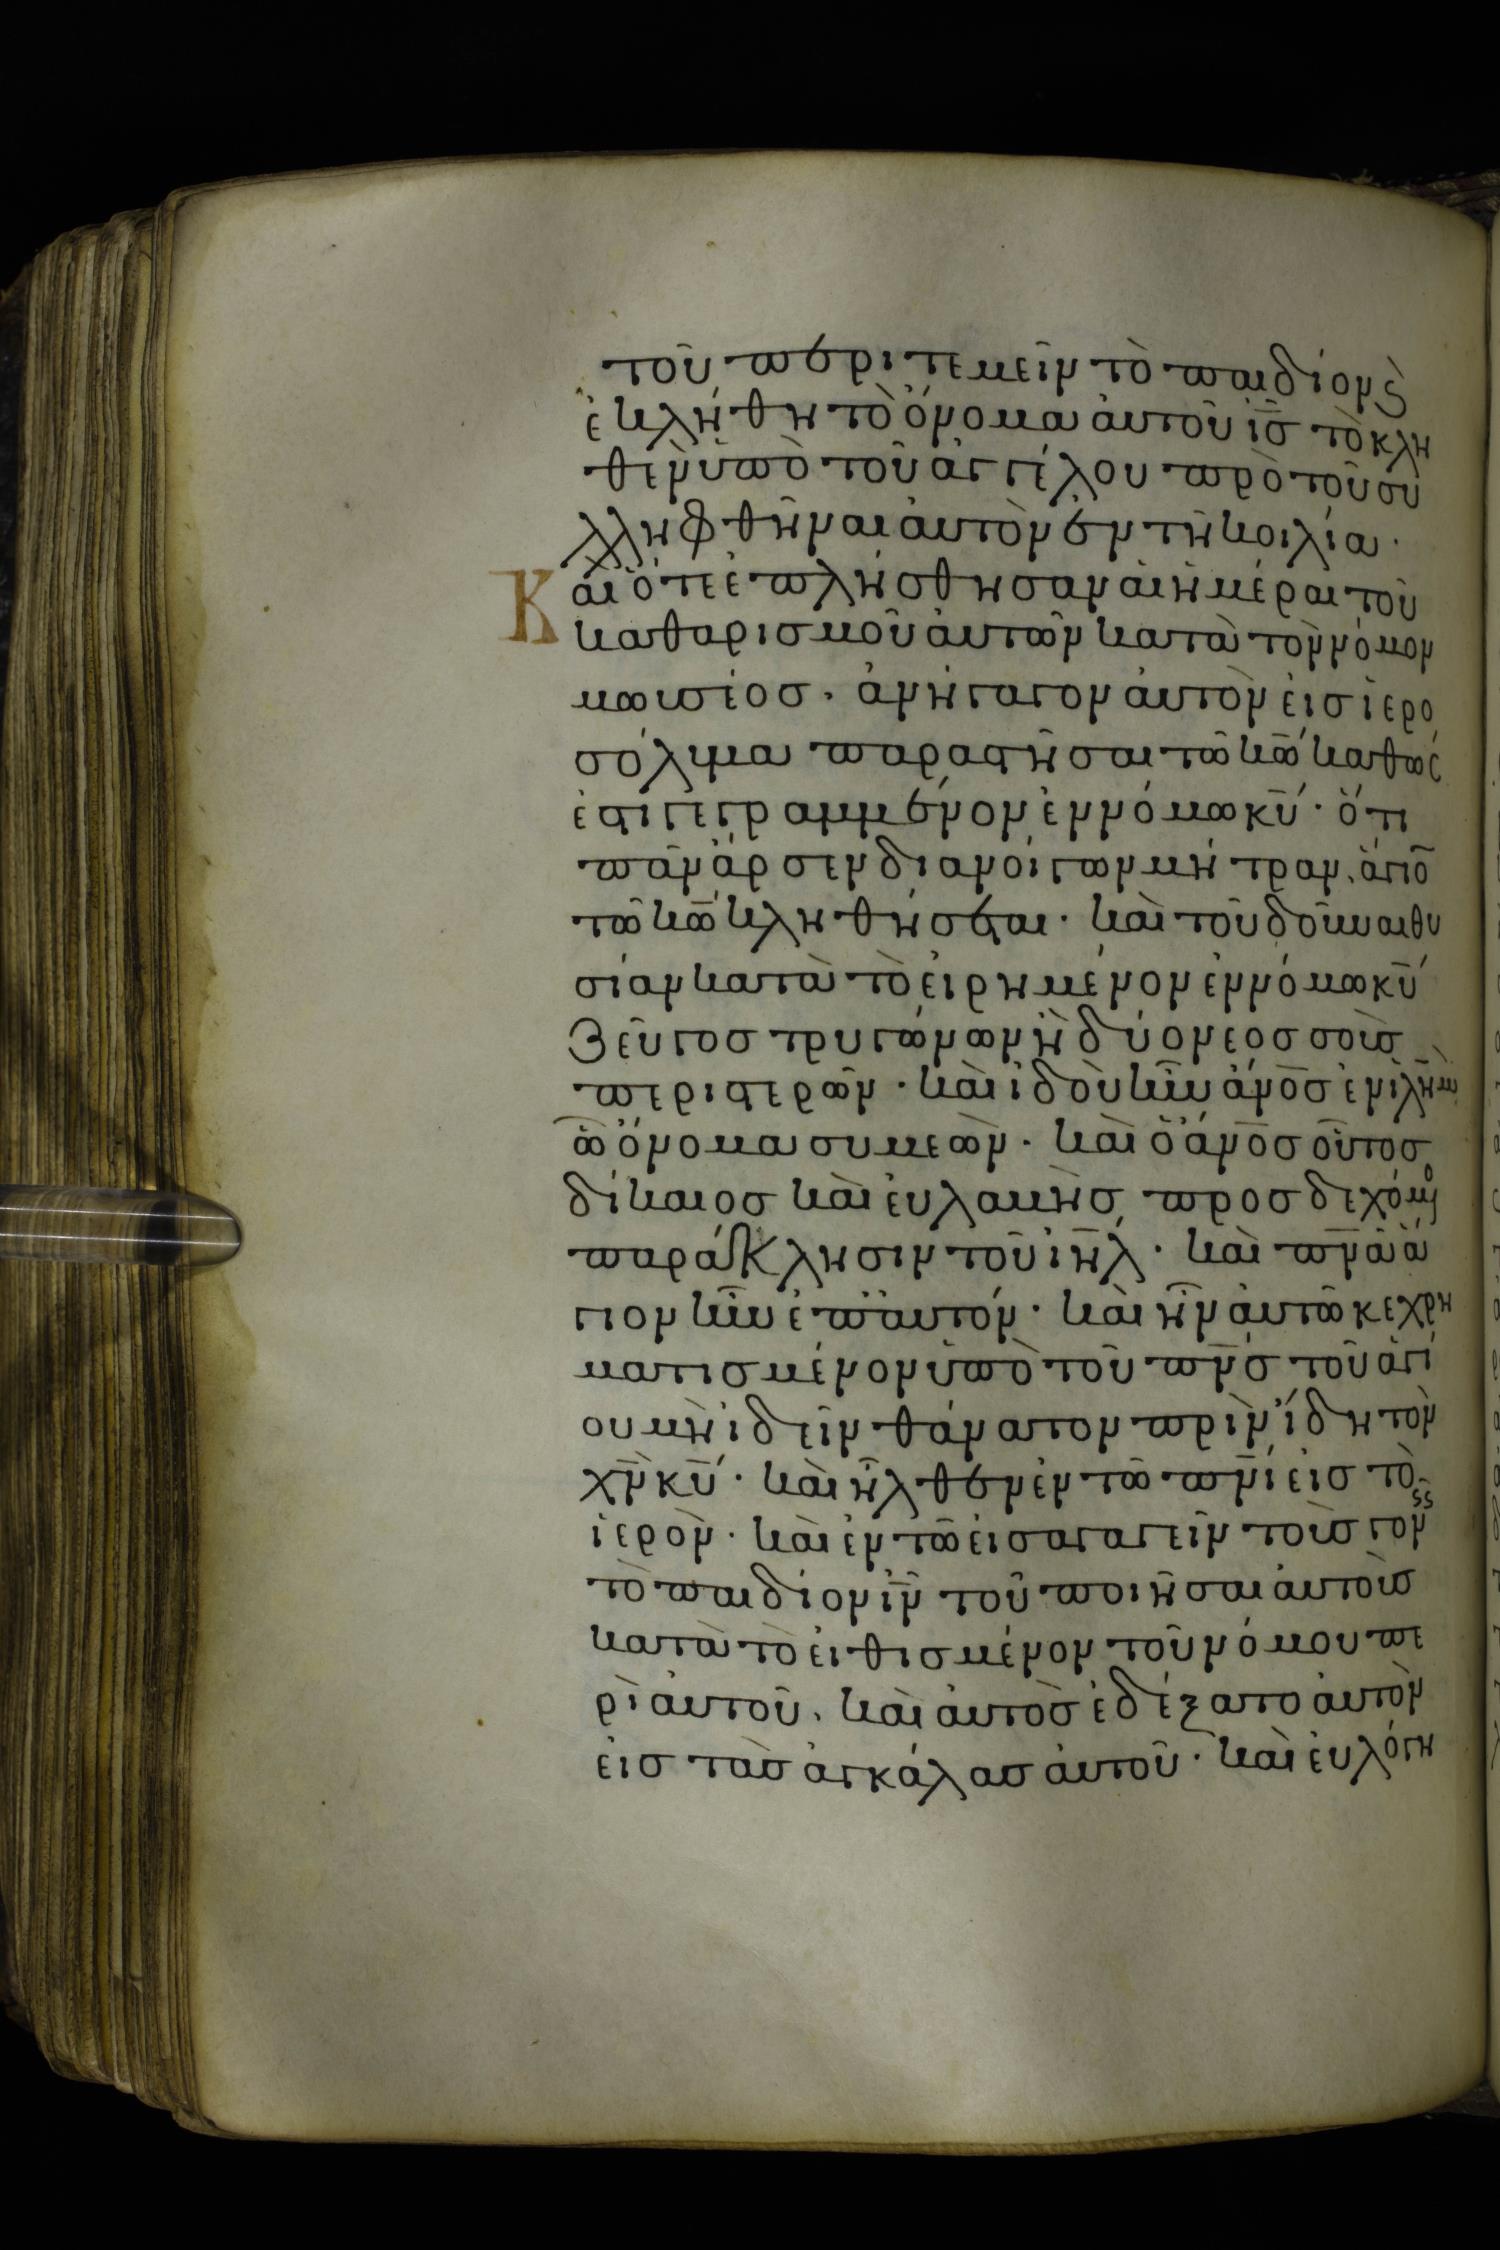 τοῦ περιτεμεῖν τὸ παιδίον ϛ̀
ἐκλήθη τὸ ὄνομα ἀυτοῦ ι̅σ̅ τὸ κλη
θὲν ὑπὸ τοῦ ἀγγέλου πρὸ τοῦ συ
λληφθῆναι ἀυτὸν ἐν τῆ κοιλία·
Καὶ ὅτε ἐπλήσθησαν ἁι ἡμέραι τοῦ
καθαρισμοῦ ἀυτῶν κατὰ τὸν νόμον
μωισέοσ· ἀνήγαγον ἀυτὸν ἐισ ἱερο
σόλυμα παραστῆσαι τῶ κ̅ω̅ καθώς
ἐστι γεγραμμένον ἐν νόμω κ̅υ̅· ὅτι
πᾶν ἄρσεν διανοίγων μήτραν, ἅγιο̅
τῶ κ̅ω̅ κληθήσεται· καὶ τοῦ δοῦναι θυ
σίαν κατὰ τὸ ἐιρημένον ἐν νόμω κ̅υ̅
ζεῦγοσ τρυγόνων ἢ δύο νεοσσοὺσ
περιστερῶν· καὶ ἰδοὺ ἦν α̅ν̅ο̅σ̅ ἐν ι̅λ̅η̅μ̅
ὧ ὄνομα συμεὼν· καὶ ὁ α̅ν̅ο̅σ̅ οὗτοσ
δίκαιοσ καὶ ἐυλαβὴσ, προσδεχόμενο
παράκλησιν τοῦ ι̅η̅λ̅· καὶ π̅ν̅α̅ ἅ
γιον ἦν ἐπ' ἀυτόν· καὶ ἦν ἀυτῶ κεχρη
ματισμένον ὑπὸ τοῦ π̅ν̅σ̅ τοῦ ἁγί
ου μὴ ἰδεῖν θάνατον πρὶν ἴδη τὸν
χ̅ν̅ κ̅υ̅· καὶ ἦλθεν ἐν τῶ π̅ν̅ι̅ ἐισ τὸ
ἱερὸν· καὶ ἐν τῶ ἐισαγαγεῖν τοὺσ γονεῖς
τὸ παιδίον ι̅ν̅ τοῦ ποιῆσαι ἀυτοὺσ
κατὰ τὸ ἐιθισμένον τοῦ νόμου πε
ρὶ ἀυτοῦ, καὶ ἀυτὸσ ἐδέξατο ἀυτὸν
ἐισ τὰσ ἀγκάλασ ἀυτοῦ· καὶ ἐυλόγη